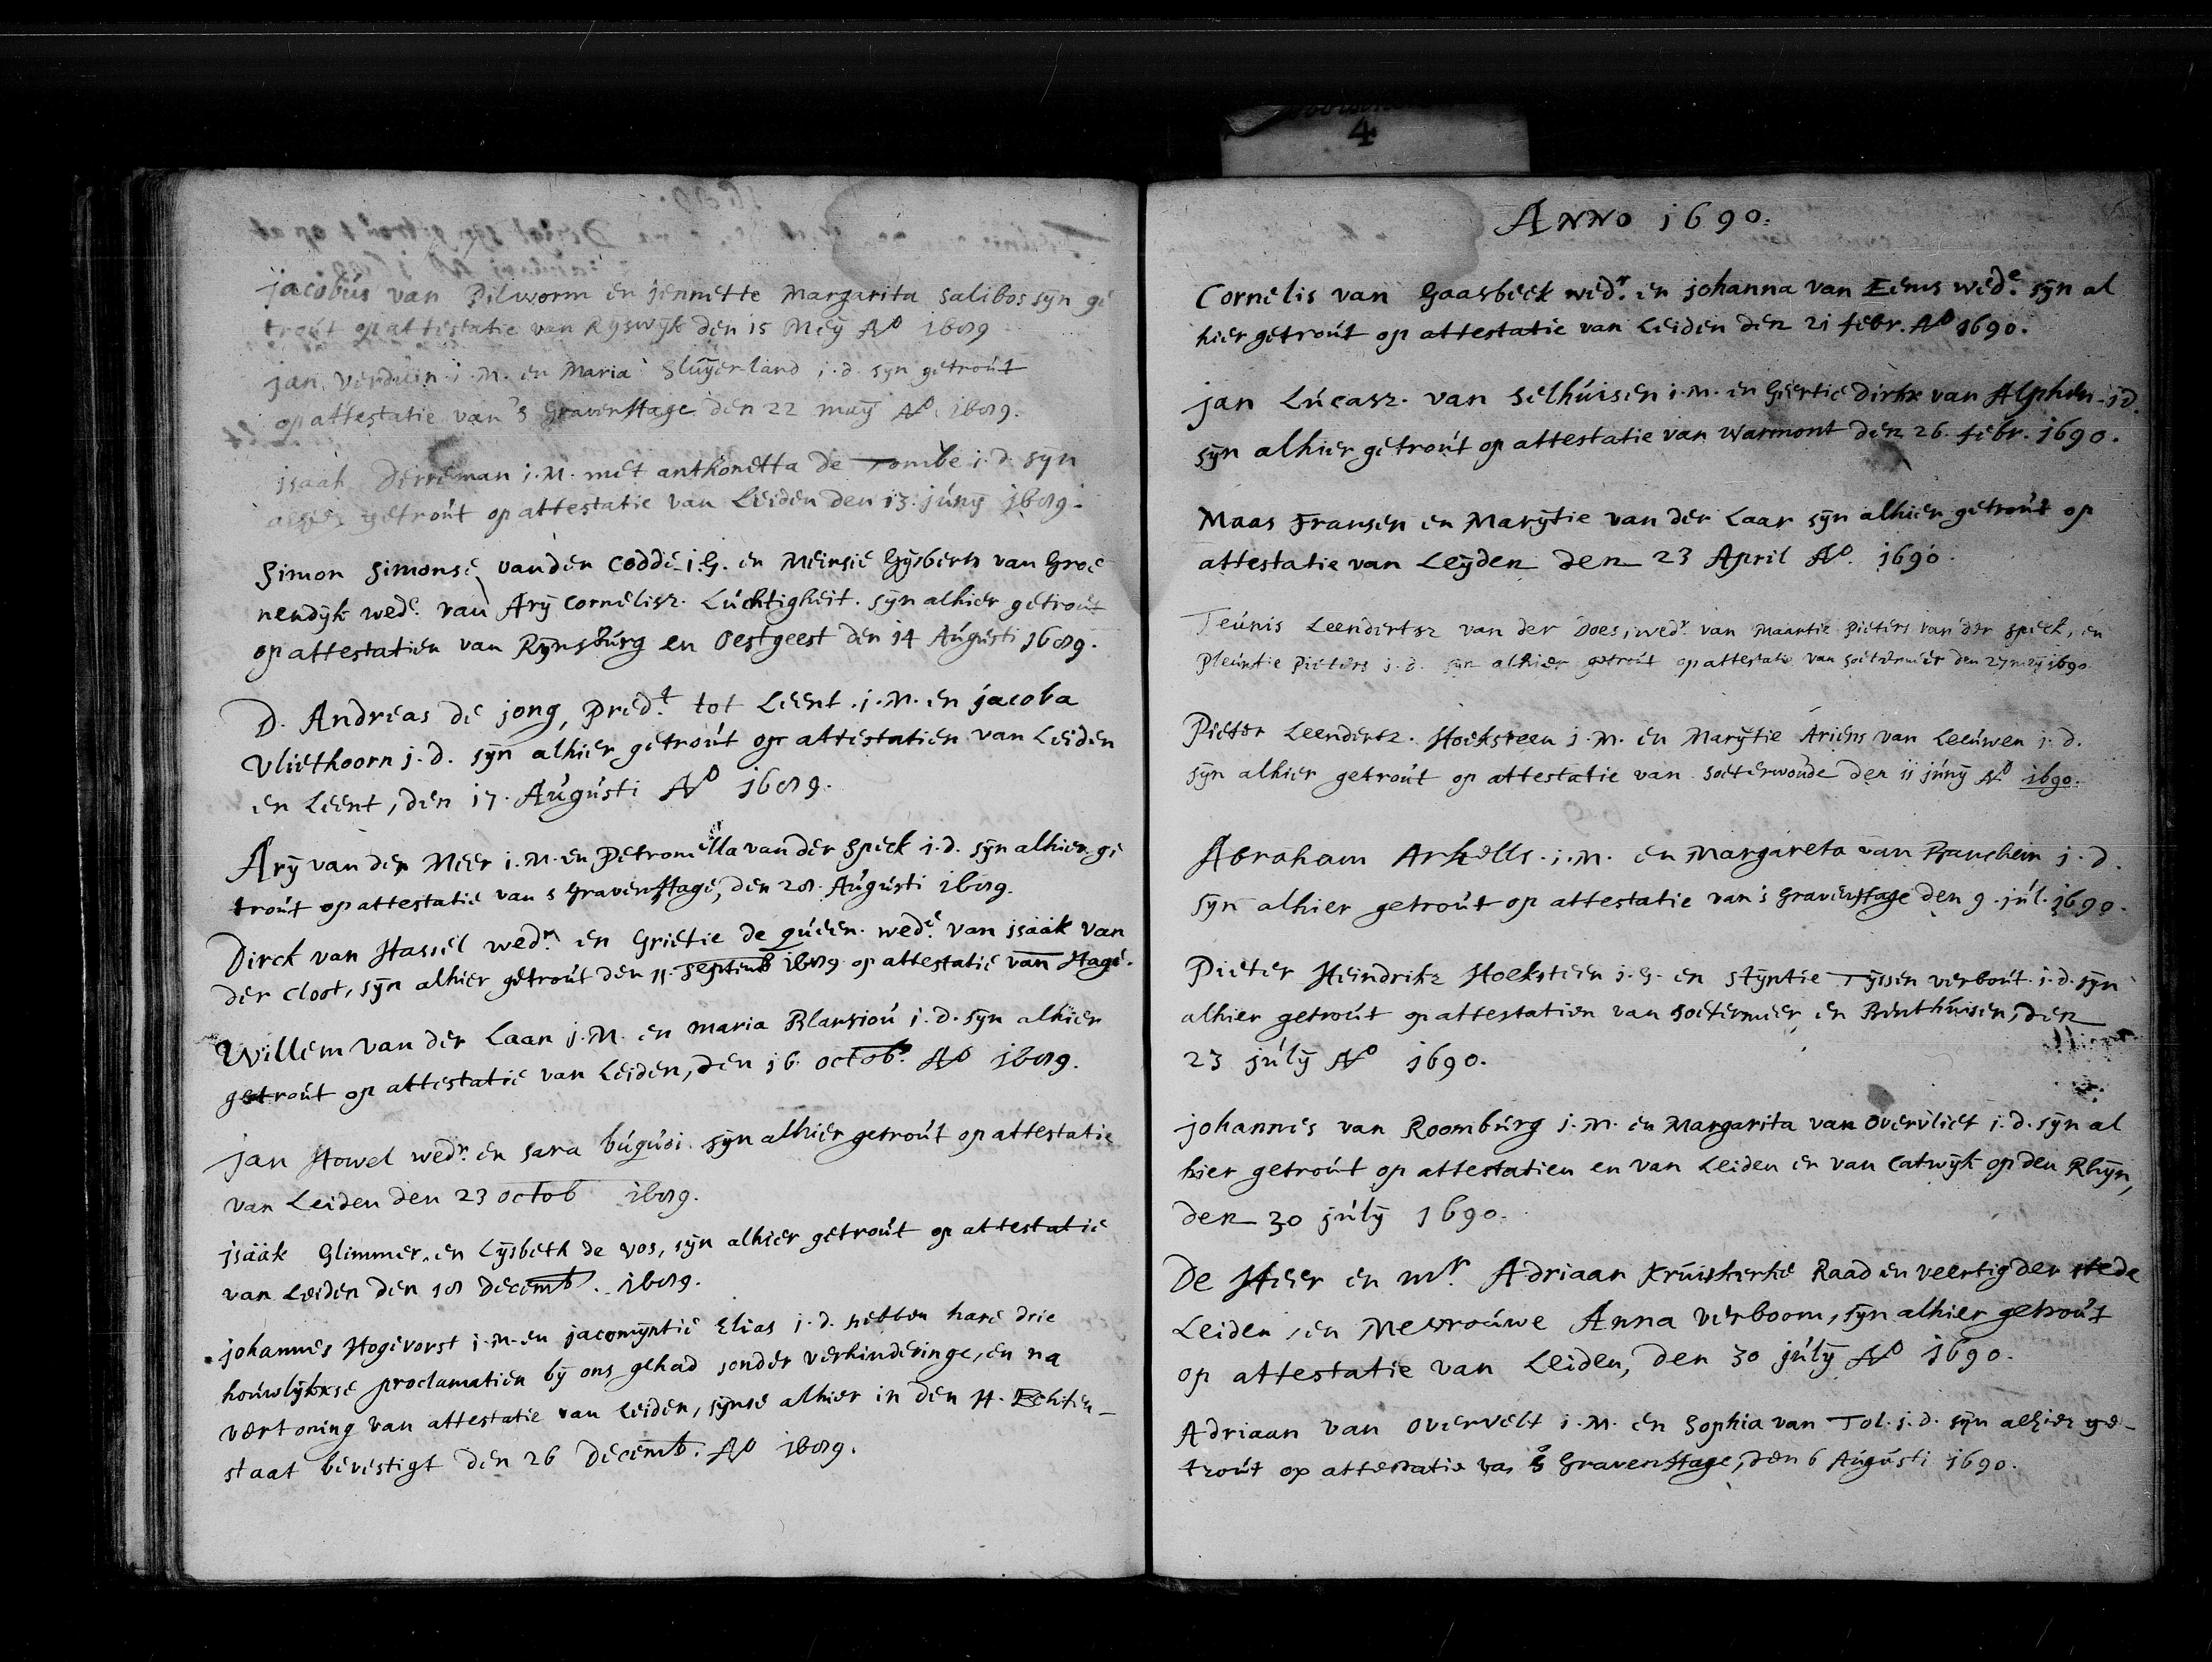 4
jacobus van Pilworm en jennette Margarita Salibos syn ge
trout op attestatie van Ryswyk den 15 Mey Ao 1689
jan Verduin j.M. en Maria Sluyerland j.d. syn getrout
op attestatie van 's GravenHage den 22 may Ao 1689.
jsaak Derreman j.M. met anthonetta de Tombe j.d. syn
alhier getrout op attestatie van Leiden den 13. juny 1689.
Simon Simonse vanden Codde j.G. en Meinsie Gysberts van Groe
nendyk wede. van Ary Cornelisz. Luchtigheit. syn alhier getrout
op attestatien van Rynsburg en Oestgeest den 14 Augusti 1689.
D. Andreas de jong, Predt. tot Leent. j.M. en jacoba
Vliethoorn j.d. syn alhier getrout op attestatien van Leiden
en Leent, den 17. Augusti Ao 1689.
Ary van der Meer j.M. en Petronella van der Speck j.d. syn alhier ge
trout op attestatie van s GravenHage, den 28. Augusti 1689.
Dirck van Hassel wedr. en Grietie de queen. wede. van jsaäk van
der Cloot, syn alhier getrout den 11 Septemb 1689 op attestatie van Hage.
Willem van der Laan j.M. en Maria Blansiou j.d. syn alhier
getrout op attestatie van Leiden, den 16. octob. Ao 1689.
jan Howel wedr. en Sara buguoi. syn alhier getrout op attestatie
van Leiden den 23 octob 1689.
jsaäk Glimmer. en Lysbeth de vos, syn alhier getrout op attestatie
van Leiden den 18 decemb. 1689.
johannes Hogevorst j.M. en jacomyntie Elias j.d. hebben hare drie
houwlykxse proclamatien by ons gehad sonder verhinderinge, en na
vertoning van attestatie van Leiden, synse alhier in den H. Echten-
staat bevestigt den 26 Decemb. Ao 1689.
ANNO 1690.
Cornelis van Gaasbeek wedr. en johanna van Eems wede. syn al
hier getrout op attestatie van Leiden den 21 febr. Ao 1690.
jan Lucasz. van Selhuisen j.M. en Giertie Dirkx van Alphen j.d.
syn alhier getrout op attestatie van Warmont den 26. febr. 1690.
Maas Fransen en Marytie van der Laar syn alhier getrout op
attestatie van Leyden den 23 April Ao. 1690.
Teunis Leendertsz van der Does, wedr. van Maartie Pieters van der Speck, en
Pleuntie Pieters j.d. syn alhier getrout op attestatie van Soetermeer den 27 mey 1690.
Pieter Leendertz. Hoeksteen j.M. en Marytie Ariens van Leeuwen j.d.
syn alhier getrout op attestatie van Soeterwoude den 11 juny Ao 1690.
Abraham Arkells. j.M. en Margareta van j.d.
syn alhier getrout op attestatie van 's GravenHage den 9. jul. 1690.
Pieter Heindrikz Hoeksteen j.G. en Styntie Tyssen verbout. j.d. syn
alhier getrout op attestatien van Soetermeer, en Benthuisen, den
23 july Ao 1690.
johannes van Roomburg j.M. en Margarita van Overvliet j.d. syn al
hier getrout op attestatien en van Leiden en van Catwyk op den Rhyn,
den 30 july 1690.
De Heer en Mr. Adriaan Kruiskerke Raad en veertig der stede
Leiden, en Mevrouwe Anna Verboom, syn alhier getrout
op attestatie van Leiden, den 30 july Ao 1690.
Adriaan van Overvelt j.M. en Sophia van Tol. j.d. syn alhier ge-
trout op attestatie van 's GravenHage, den 6 Augusti 1690.